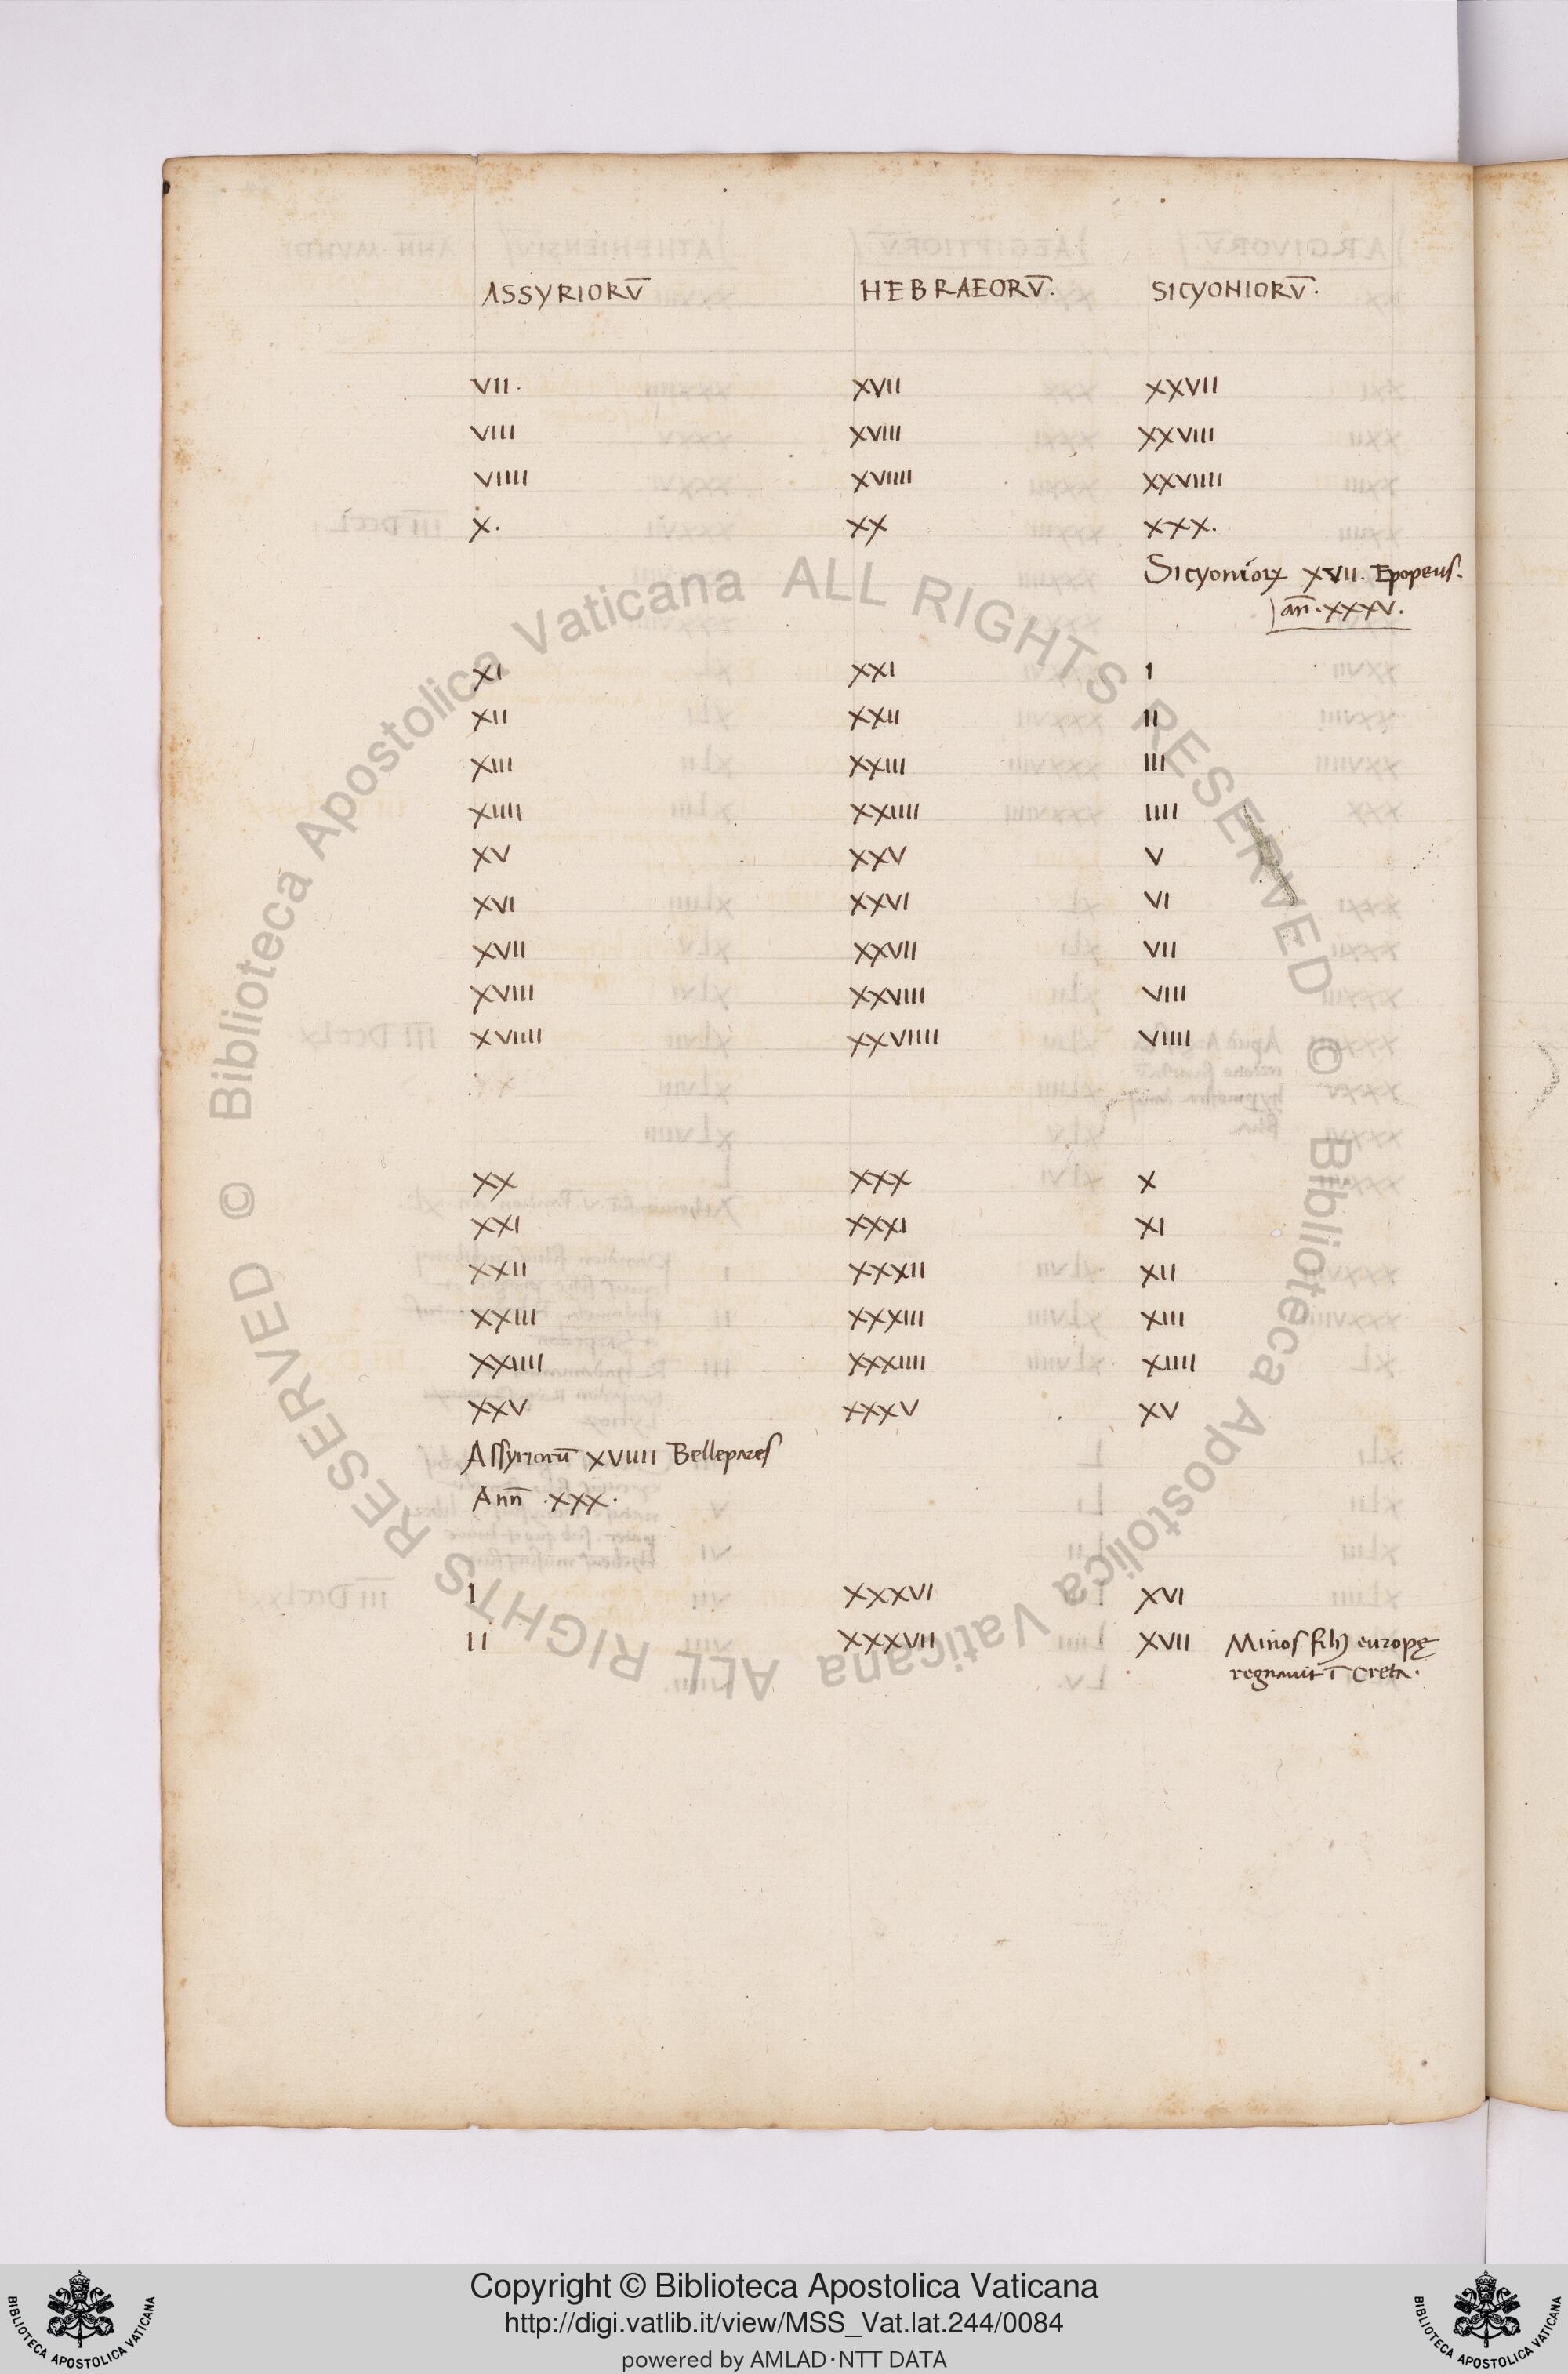 ASSYRIORV̅ HEBRAEORV̅. SICYONIORV̅.
VII. XVII XXVII
VIII XVIII XXVIII
VIIII XVIIII XXVIIII
X. XX XXX.
Sicyonioꝝ XVII. Epopeus.
an̅. XXXV.
XI XXI I
XII XXII II
XIII XXIII III
XIIII XXIIII IIII
XV XXV V
XVI XXVI VI
XVII XXVII VII
XVIII XXVIII VIII
XVIIII XXVIIII VIIII
XX XXX X
XXI XXXI XI
XXII XXXII XII
XXIII XXXIII XIII
XXIIII XXXIIII XIIII
XXV XXXV XV
Assyrioru̅ XVIIII Bellepares
Ann̅ .XXX.
I XXXVI XVI
II XXXVII XVII Minos filiꝰ europę
regnauit ī Creta.
© Biblioteca Apostolica Vaticana ALL RIGHTS RESERVED
© Biblioteca Apostolica Vaticana ALL RIGHTS RESERVED
Copyright © Biblioteca Apostolica Vaticana
http://digi.vatlib.it/view/MSS_Vat.lat.244/0084
powered by AMLAD·NTT DATA
BIBLIOTECA APOSTOLICA VATICANA
BIBLIOTECA APOSTOLICA VATICANA